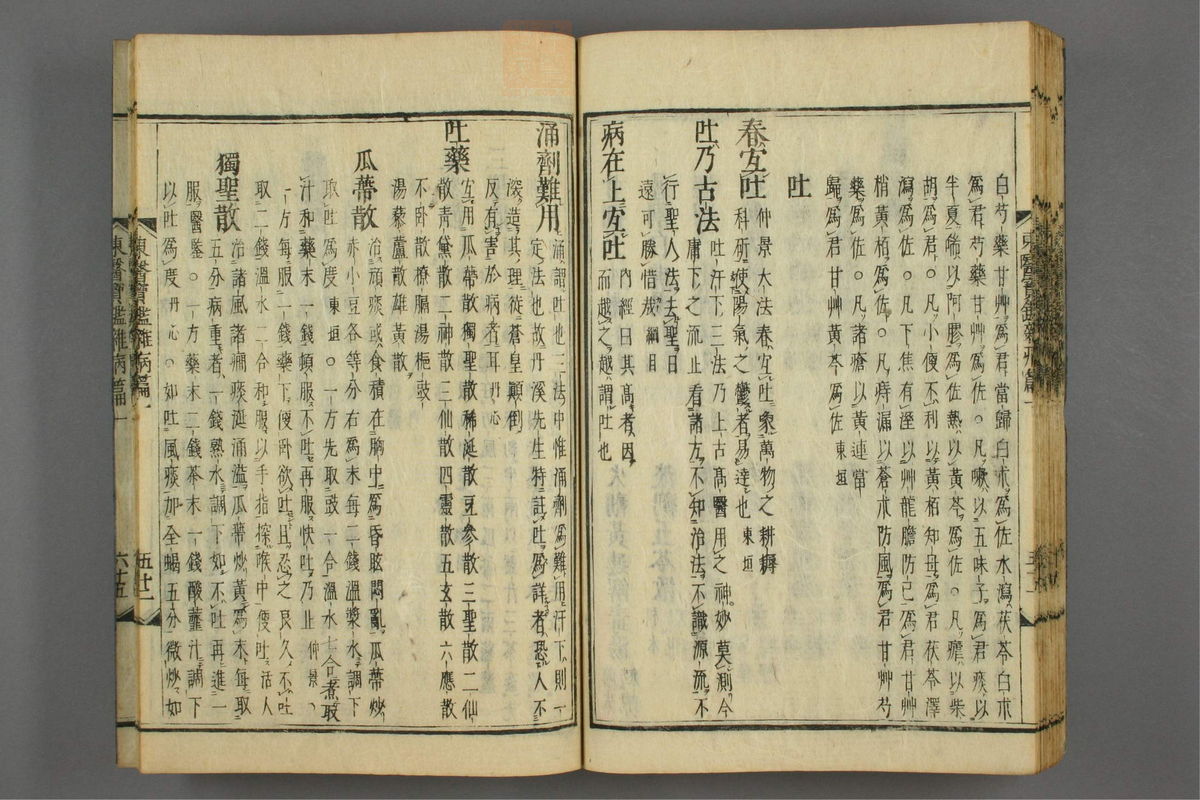 白芍藥甘艸爲君當歸白朮爲佐水瀉茯苓白朮
爲君芍藥甘艸爲佐○凡嗽以五味子爲君痰以
半夏喘以阿膠爲佐熱以黃芩爲佐○凡瘧以柴
胡爲君○凡小便不利以黃栢知母爲君茯苓澤
瀉爲佐○凡下焦有溼以艸龍膽防己爲君甘艸
梢黃栢爲佐○凡痔漏以蒼朮防風爲君甘艸芍
藥爲佐○凡諸瘡以黃連當
歸爲君甘艸黃芩爲佐東垣
吐
春宐吐仲景大法春宐吐象萬物之耕耨
科斫使陽氣之鬱者易達也東垣
吐乃古法吐汗下三法乃上古高醫用之神妙莫測今
庸下之流止看諸方不知治法不識源流不
行聖人法去聖日
遠可勝惜哉綱目
病在上宐吐內經曰其高者因
而越之越謂吐也
涌劑難用涌謂吐也三法中惟涌劑爲難用汗下則
定法也故丹溪先生特註吐爲詳者恐人不
深造其理徒蒼皇顚倒
反有害於病者耳丹心
吐藥宐用瓜蔕散獨聖散稀涎散豆參散三聖散二仙
散靑黛散二神散三仙散四靈散五玄散六應散
不卧散撩膈湯梔豉
湯藜蘆散雄黃散
瓜蔕散治頑痰或食積在胸中爲昏眩悶亂瓜蔕炒
赤小豆各等分右爲末每二錢溫漿水調下
取吐爲度東垣○一方先取豉一合溫水七合煮取
汁和藥末一錢頓服不吐再服快吐乃止仲景○
一方每服一錢藥下便卧欲吐且忍之良久不吐
取二錢溫水二合和服以手指探喉中便吐活人
獨聖散治諸風諸癇痰涎涌溢瓜蔕炒黃爲末每取
五分病重者一錢熟水調下如不吐再進一
服醫鑒○一方藥末二錢茶末一錢酸虀汁調下
以吐爲度丹心○如吐風痰加全蝎五分微炒如
東醫寶鑑雜病篇一
五廿二
東醫寶鑑雜病篇一
六廿五